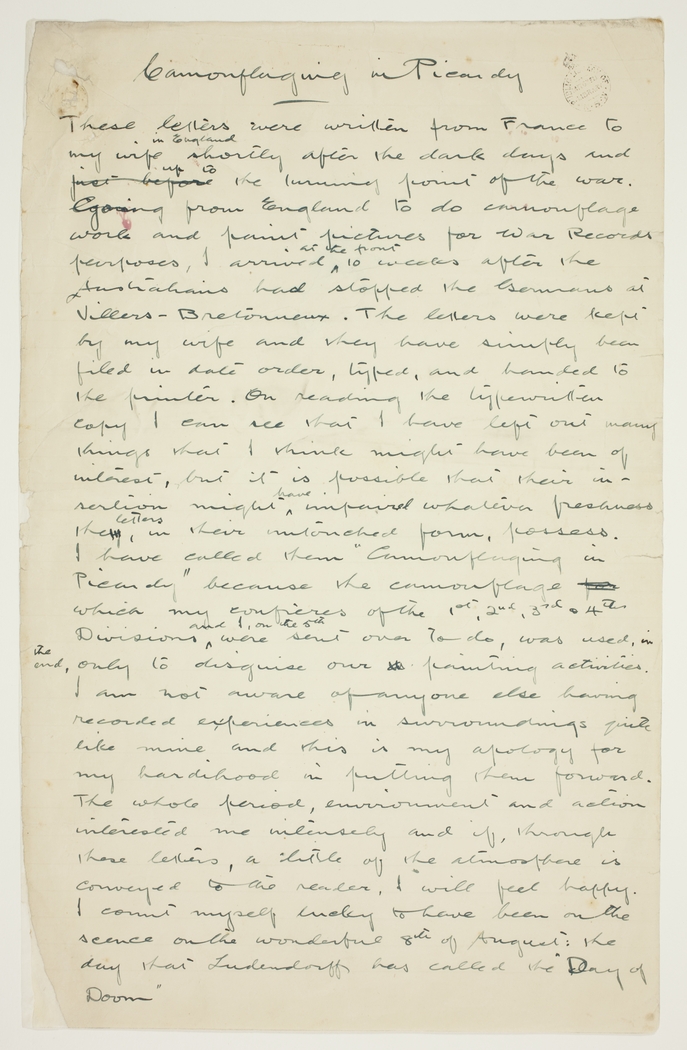 Camouflaging in Picardy
These letters were written from France to
my wife in England shortly after the dark days and
just before up to the turning point of the war.
Going from England to do camouflage
work and paint pictures for War Records
purposes, I arrived at the front 10 weeks after the
Australians had stopped the Germans at
Villers-Bretonneux. The letters were kept
by my wife and they have simply been
filed in date order, typed, and handed to
the printer. On reading the typewritten
copy I can see that I have left out many
things that I think might have been of
interest, but it is possible that their in-
sertion might have impaired whatever freshness
the letters, in their untouched form, possess.
I have called them "Camouflaging in
Picardy" because the camouflage for
which my confreres of the 1st, 2nd, 3rd & 4th
Divisions and I, on the 5th were sent over to do, was used, in
the end, only to disguise our painting activities.
I am not aware of anyone else having
recorded experiences in surroundings quite
like mine and this is my apology for
my hardihood in putting them forward.
The whole period, environment and action
interested me intensely and if, through
these letters, a little of the atmosphere is
conveyed to the reader, I will feel happy.
I count myself lucky to have been on the
scence on the wonderful 8th of August: the
day that Ludendorff has called the "Day of
Doom"